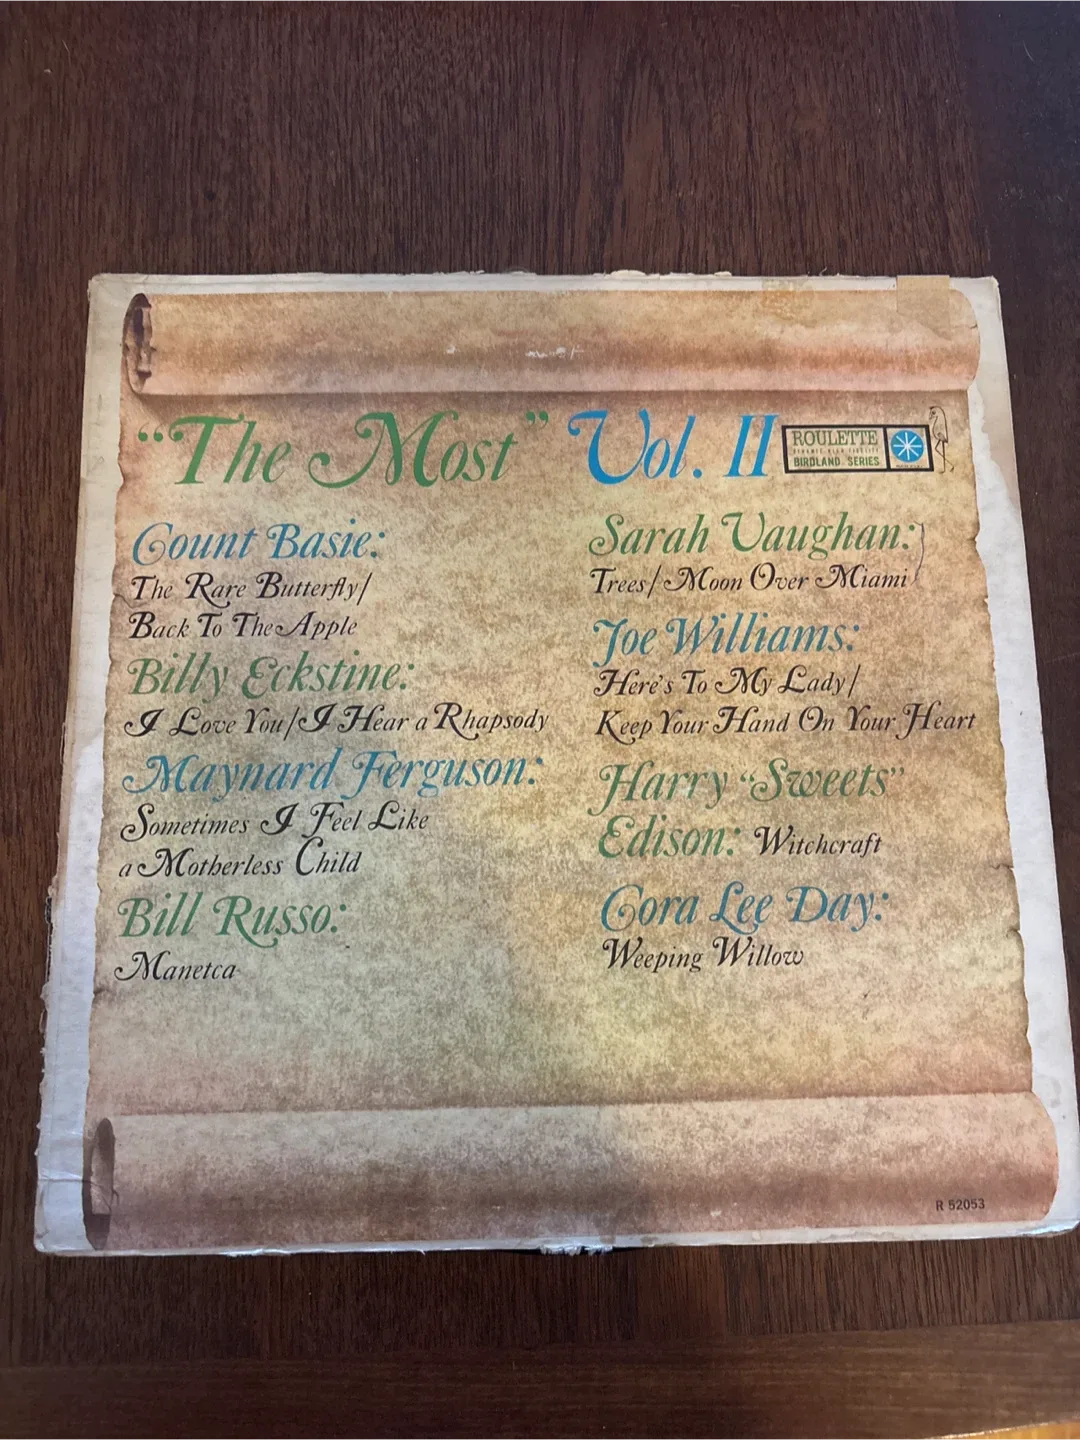 "The Most" Vol. II
ROULETTE
DYNAMIC HIGH FIDELITY
BIRDLAND SERIES
Count Basie:
The Rare Butterfly/
Back To The Apple
Billy Eckstine:
I Love You/I Hear a Rhapsody
Maynard Ferguson:
Sometimes I Feel Like
a Motherless Child
Bill Russo:
Manetca
Sarah Vaughan:
Trees/Moon Over Miami
Joe Williams:
Here's To My Lady/
Keep Your Hand On Your Heart
Harry "Sweets"
Edison: Witchcraft
Cora Lee Day:
Weeping Willow
R 52053